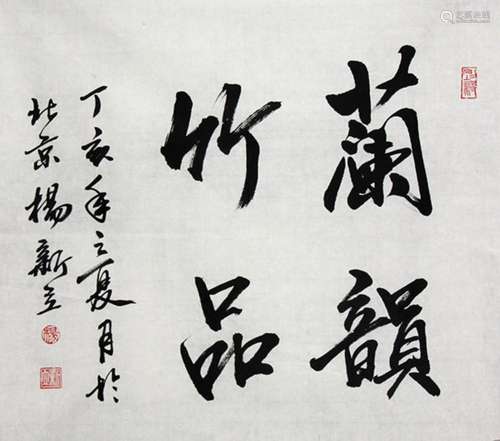 蘭韻
竹品
丁亥年之夏月於
北京楊新立